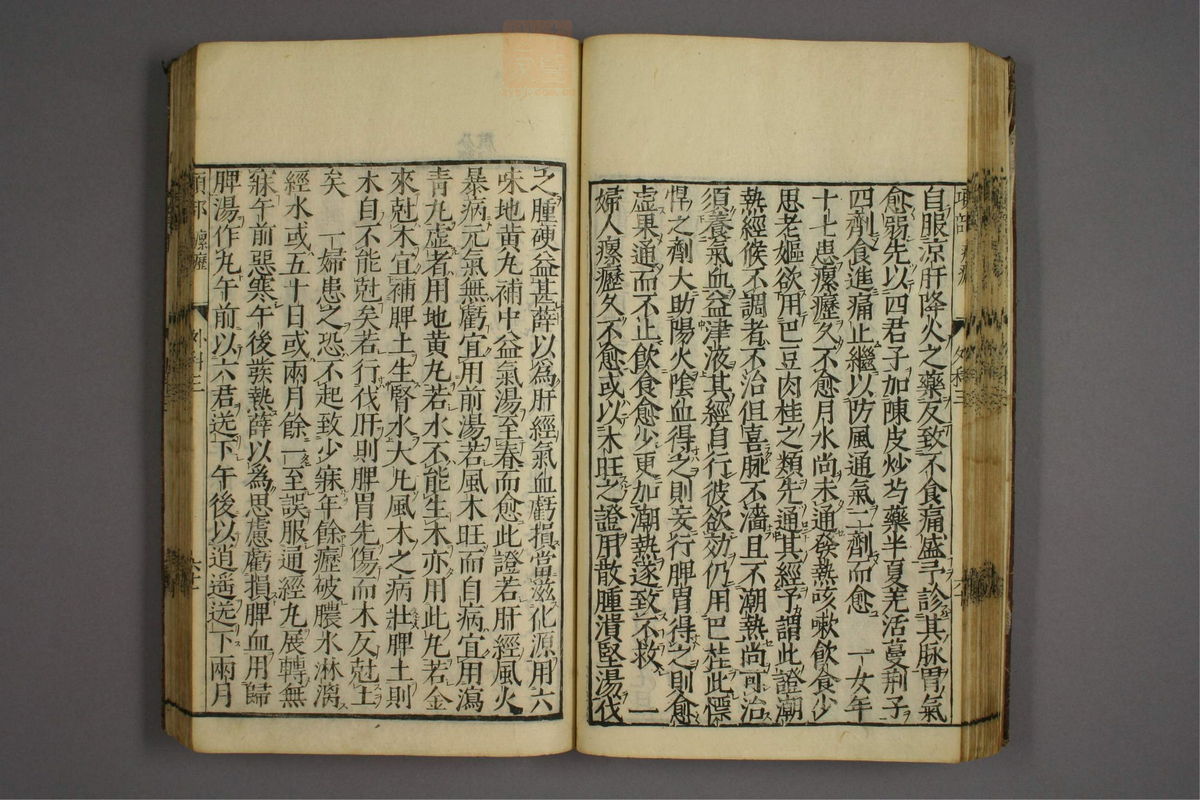 自服凉肝降火之藥反致不食痛盛予診其脉胃氣
愈弱先以四君子加陳皮炒芍藥半夏羌活蔓荆子
四劑食進痛止繼以防風通氣二劑而愈　一女年
十七患瘰癧久不愈月水尚未通發熱咳嗽飲食少
思老嫗欲用巴豆肉桂之類先通其經予謂此證潮
熱經候不調者不治但喜脉不濇且不潮熱尚可治
須養氣血益津液其經自行彼欲効仍用巴桂此慓
悍之劑大助陽火陰血得之則妄行脾胃得之則愈
虚果通而不止飲食愈少更加潮熱遂致不救　一
婦人瘰癧久不愈或以木旺之證用散腫潰堅湯伐
之腫硬益甚薛以爲肝經氣血虧損當滋化源用六
味地黄丸補中益氣湯至春而愈此證若肝經風火
暴病元氣無虧宜用前湯若風木旺而自病宜用瀉
青丸虚者用地黄丸若水不能生木亦用此丸若金
來尅木宜補脾土生腎水大凡風木之病壯脾土則
木自不能尅矣若行伐肝則脾胃先傷而木反尅土
矣　一婦患之恐不起致少寐年餘癧破膿水淋漓
經水或五十日或兩月餘一至誤服通經丸展轉無
寐午前惡寒午後發熱薛以爲思慮虧損脾血用歸
脾湯作丸午前以六君送下午後以逍遥送下兩月
項部　瘰癧　外科三　六十